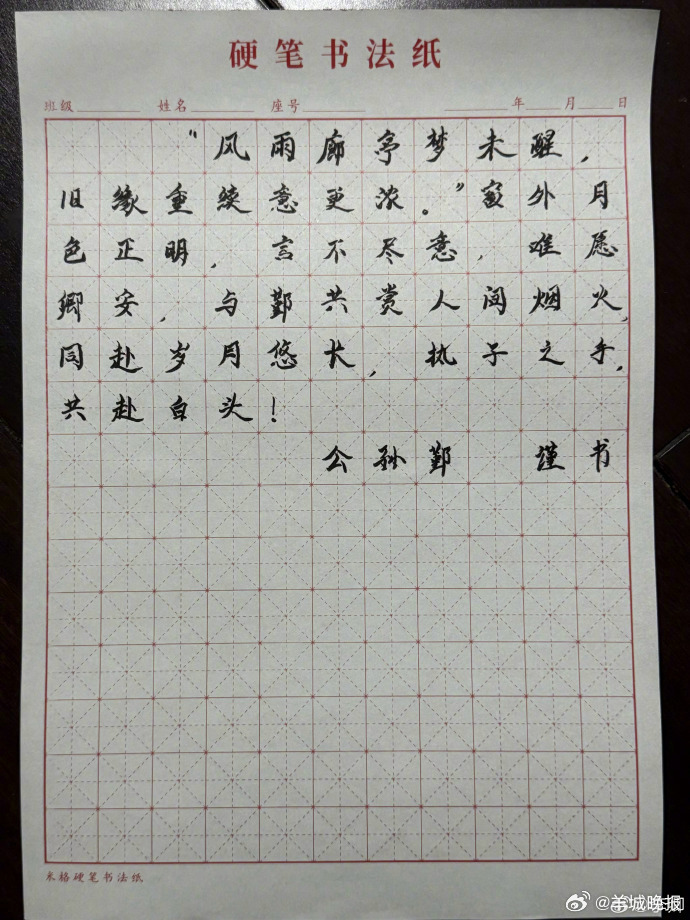 硬笔书法纸
班级 姓名 座号 年 月 日
“风雨廊亭梦未醒，
旧缘重续意更浓。”窗外月
色正明，言不尽意，难愿
卿安，与鄞共赏人间烟火，
同赴岁月悠长，执子之手，
共赴白头！
公孙鄞 谨书
米格硬笔书法纸
@羊城晚报